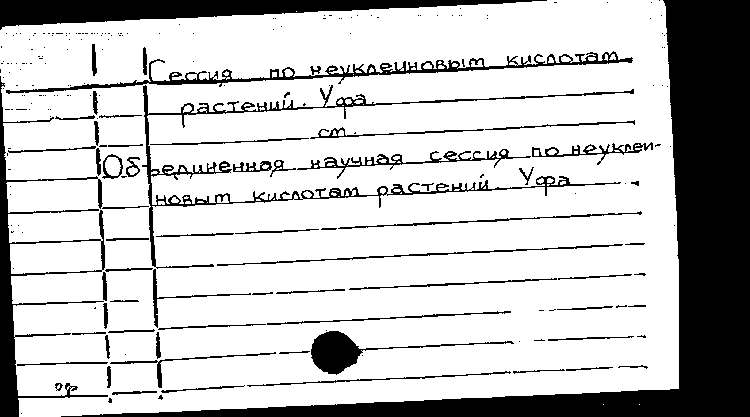 Сессия по неуклеиновым кислотам
растений. Уфа.
см.
Объединенная научная сессия по неуклеи-
новым кислотам растений. Уфа